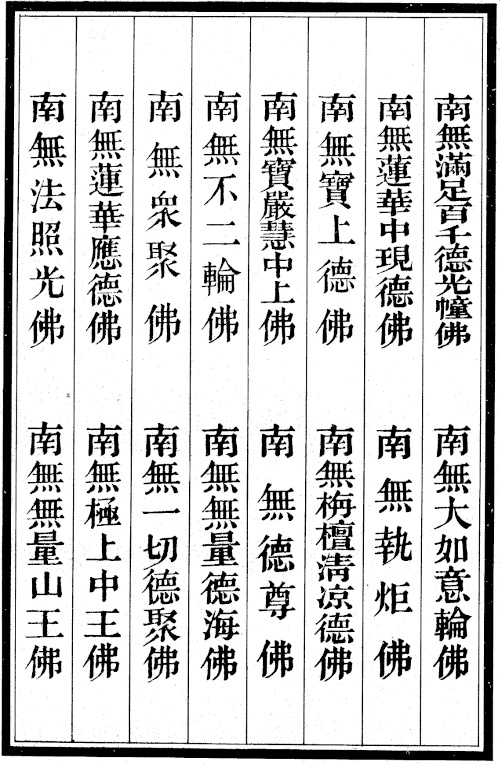 南無滿足百千德光幢佛
南無大如意輪佛
南無蓮華中現德佛
南無執炬佛
南無寶上德佛
南無栴檀淸凉德佛
南無寶嚴慧中上佛
南無德尊佛
南無不二輪佛
南無無量德海佛
南無衆聚佛
南無一切德聚佛
南無蓮華應德佛
南無極上中王佛
南無法照光佛
南無無量山王佛